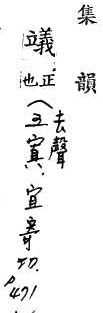 集韻
正也
去聲
五寘.宜寄切.
P471